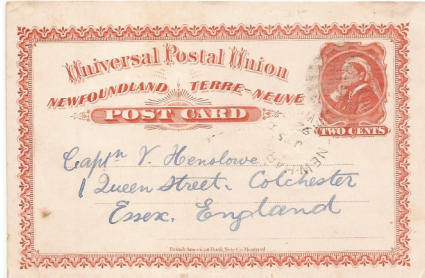 Universal Postal Union
NEWFOUNDLAND TERRE-NEUVE
POST CARD
TWO CENTS
Captn V. Henslowe.
1 Queen Street. Colchester
Essex. England
British American Bank Note Co. Montreal